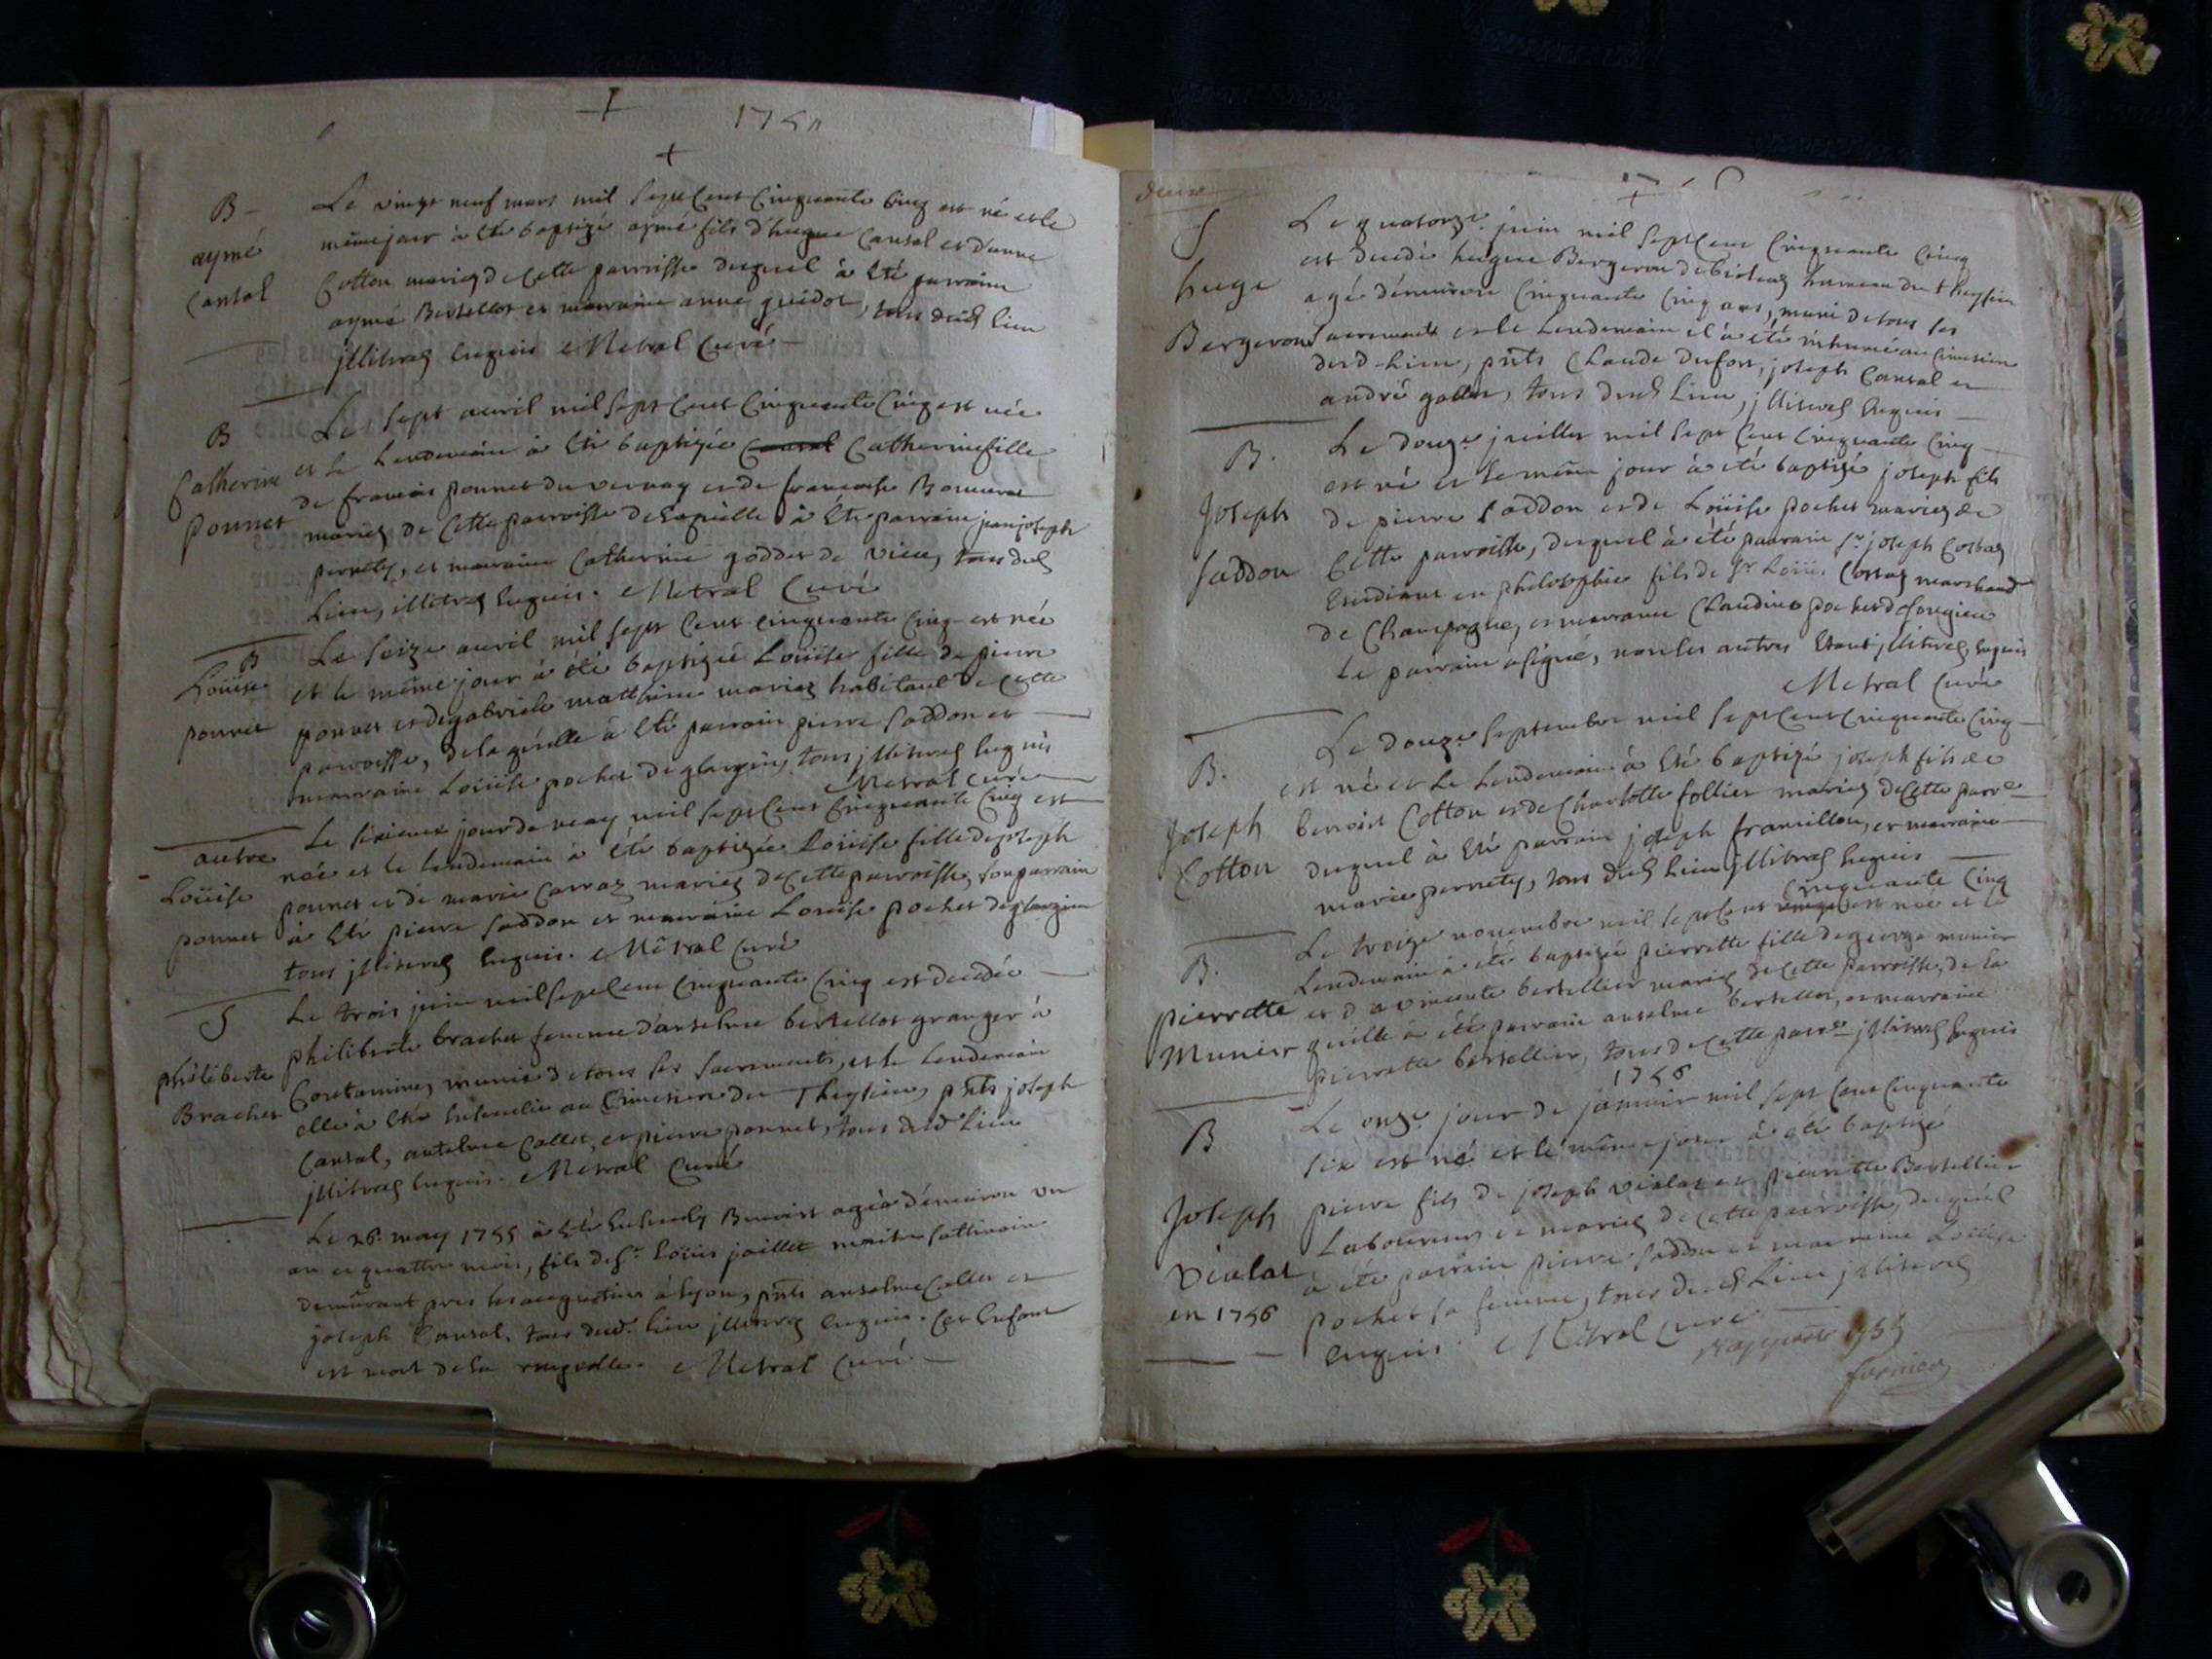 175
B - Le vingt neuf mars mil sept cent cinquante cinq est né et le
aymé même jour à été baptizé aymé fils d'hugue Cansal et d'anne
Cansal Cotton mariez de cette parroisse duquel à été parrain
aymé Bertellot et marraine anne guidot, tous dud lieu
jllitrez enquis Metral Curé
B Le sept avril mil sept cent cinquante cinq est née
Catherine et le lendemain à été baptizée Catherine fille
ponnet de francois ponnet du vernay et de francoise Bonneret
mariez de cette parroisse de laquelle à été parrain jean joseph
pernety, et marraine Catherine goddet de vieu, tous dud
Lieu, illitrez enquis. Metral Curé
B Le seize avril mil sept cent cinquante cinq est née
Loüise et le même jour à été baptizée Loüise fille de pierre
ponnet ponnet et de gabriele matthieu mariez habitant de cette
parroisse, de laquelle à été parrain pierre saddon et
marraine Loüise pochet de glargin, tous jllitrez enquis
Metral curé
autre Le sixieme jour de may mil sept cent cinquante cinq est
Loüise née et le lendemain à été baptizée Loüise fille de joseph
ponnet ponnet et de marie Carraz mariez de cette parroisse, son parrain
à été pierre saddon et marraine Loüise pochet de glargin
tous jllitrez enquis. Métral Curé
S Le trois juin mil sept cent cinquante cinq est decedée
philiberte philiberte brachet femme d'anselme bertellot granger à
Brachet Contamine, munie de tous ses sacrements, et le lendemain
elle à été ensevelie au Cimetiere du Theysieu, pnts joseph
Cansal, antelme Collet, et pierre ponnet, tous dud lieu
jllitrez enquis. Métral Curé
Le 26 may 1755 à été ensevely Benoist agée d'environ un
an et quattre mois, fils de sr Loüis jaillet maitre sattinaire
demûrant pres les augustins à lyon, pnts anselme Collet et
joseph Cansal, tous dud. lieu jllitrez enquis. Cet Enfant
est mort de la rougeolle. Metral Curé
deux
S Le quatorze juin mil sept cent cinquante cinq
est decedé hugue Bergeron de hameau du theysieu
huge agé d'environ cinquante cinq ans, muni de tous ses
Bergeron sacrements et le lendemain il à été inhumé au Cimetiere
dud. Lieu, pnts Claude Dufort, joseph Cansal et
andré gollet, tous dud Lieu, jllitrez enquis
B. Le douze juillet mil sept cent cinquante cinq
est né et le même jour à été baptizé joseph fils
Joseph de pierre saddon et de Loüise pochet mariez de
saddon Cette parroisse, duquel à été parrain sr joseph Costaz
Etudiant en philosophie fils de sr Loüis Costaz marchand
de Champagne, et marraine Claudine pochet de songieu
Le parrain à signé, non les autres Etant jllitrez, enquis
Metral curé
Le douze septembre mil sept cent cinquante cinq
B. est né et le lendemain à été baptizé joseph fils de
Joseph benoist Cotton et de Charlotte follier mariez de cette parre
Cotton duquel à été parrain joseph framillon, et marraine
marie pernety, tous dud Lieu jllitrez enquis
Le treize novembre mil sept cent cinquante cinq
B. est née et le
Lendemain à été baptizée pierrette fille de george munier
pierrette et d vincente bertellier mariez de cette parroisse, de la
Munier quelle à été parrain anselme bertellot, et marraine
pierrette bertellier, tous de cette parre jllitrez enquis
1756
B Le onze jour de janvier mil sept cent cinquante
six est né et le même jour à été baptizé
Joseph pierre fils de joseph vialat et pierrette Bertellier
Vialat Laboureurs et mariez de cette parroisse, duquel
en 1756 à été parrain pierre saddon et marraine Loüise
pochet sa femme, tous dud Lieu jllitrez
enquis. Métral curé
1755